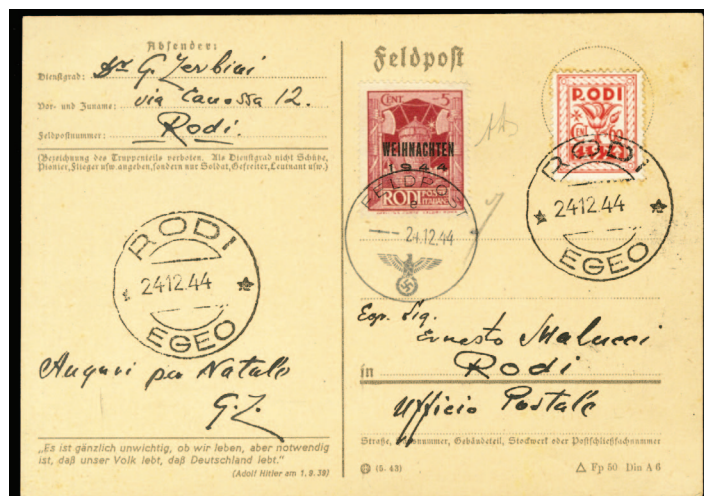 Absender:
Dienstgrad: Dr G. Zerbini
Vor- und Zuname: via Canossa 12.
Feldpostnummer: Rodi.
(Bezeichnung des Truppenteils verboten. Als Dienstgrad nicht Schütze,
Pionier, Flieger usw angeben, sondern nur Soldat, Gefreiter, Leutnant usw.)
RODI
24.12.44
EGEO
Auguri per Natale
G. Z.
„Es ist gänzlich unwichtig, ob wir leben, aber notwendig
ist, daß unser Volk lebt, daß Deutschland lebt."
(Adolf Hitler am 1. 9. 39)
Feldpost
CENT 5
WEIHNACHTEN
1944
RODI POSTE ITALIANE
FELDPOST
e
24.12.44
RODI
CENT 60
RODI
24.12.44
EGEO
Esp. Sig.
Ernesto Malucci
in Rodi
Ufficio Postale
Straße, Hausnummer, Gebäudeteil, Stockwerk oder Postschließfachnummer
(5. 43)
Fp 50 Din A 6